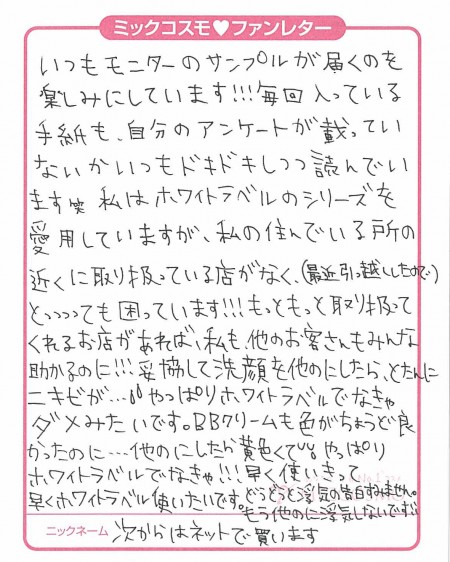 ミックコスモ♥ファンレター
いつもモニターのサンプルが届くのを
楽しみにしています!!!毎回入っている
手紙も、自分のアンケートが載ってい
ないかいつもドキドキしつつ読んでい
ます笑 私はホワイトラベルのシリーズを
愛用していますが、私の住んでいる所の
近くに取り扱っている店がなく、(最近引っ越ししたので)
とっっっっても困っています!!!もっともっと取り扱って
くれるお店があれば、私も、他のお客さんもみんな
助かるのに!!!妥協して洗顔を他のにしたら、とたんに
ニキビが…!!やっぱりホワイトラベルでなきゃ
ダメみたいです。BBクリームも色がちょうど良
かったのに…他のにしたら黄色くて!!やっぱり
ホワイトラベルでなきゃ!!!早く使いきって
早くホワイトラベル使いたいです。どうどうと浮気の告白すみません。
もう他のに浮気しないです!!
ニックネーム 次からはネットで買います